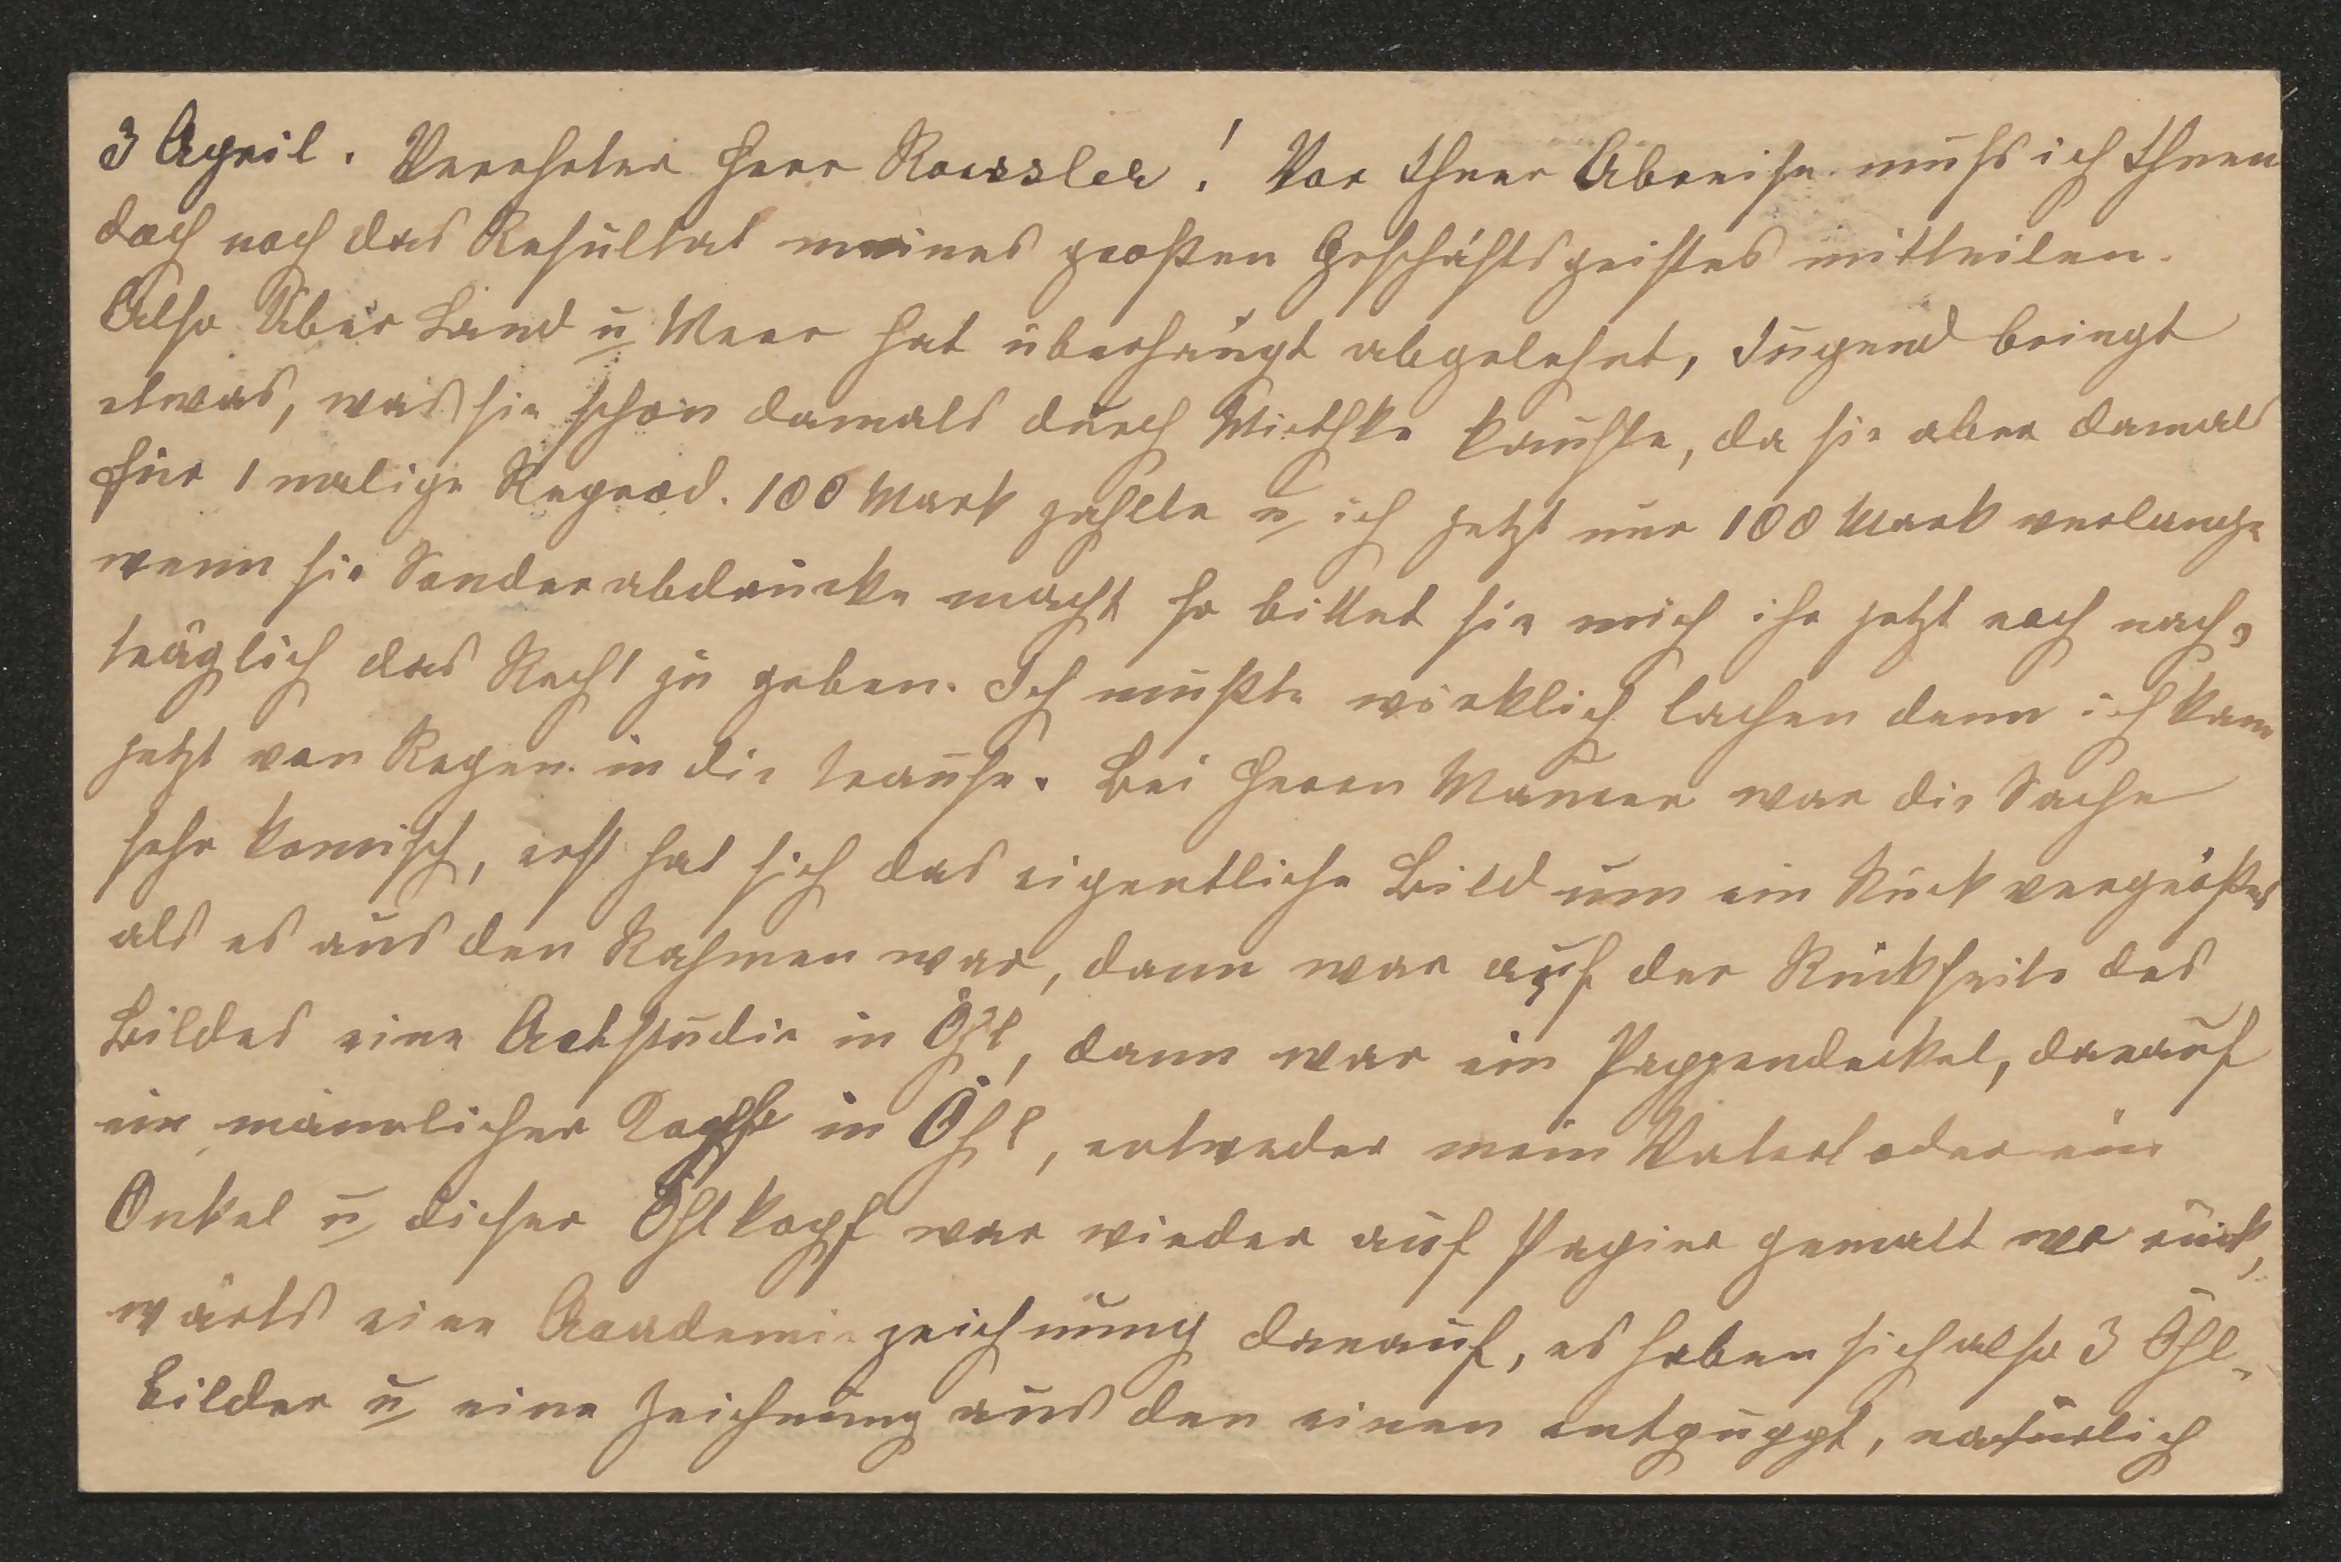 3 April. Verehrter Herr Roessler! Vor Ihrer Abreise muß ich Ihnen
doch noch das Resultat meines großen Geschäftsgeistes mitteilen.
Also Über Land u Meer hat überhaupt abgelehnt, Jugend bringt
etwas, was sie schon damals durch Miethke kaufte, da sie aber damals
für 1 malige Reprod. 100 Mark zahlte u ich jetzt nur 100 Mark verlange
wenn sie Sonderabdrucke macht so bittet sie mich ihr jetzt noch nach-
träglich das Recht zu geben. Ich mußte wirklich lachen denn ich kam
jetzt von Regen in die Traufe. Bei Herrn Wawra war die Sache
sehr komisch, erst hat sich das eigentliche Bild um ein Ruck vergrößert
als es aus den Rahmen war, dann war auf der Rückseite des
Bildes eine Actstudie in Öhl, dann war ein Pappendeckel, darauf
ein männlicher Kopf in Öhl, entweder mein Vaterl oder ein
Onkel u dieser Öhlkopf war wieder auf Papier gemalt wo rück,
wärts eine Academiezeichnung darauf, es haben sich also 3 Öhl-
bilder u eine Zeichnung aus den einen entpuppt, natürlich